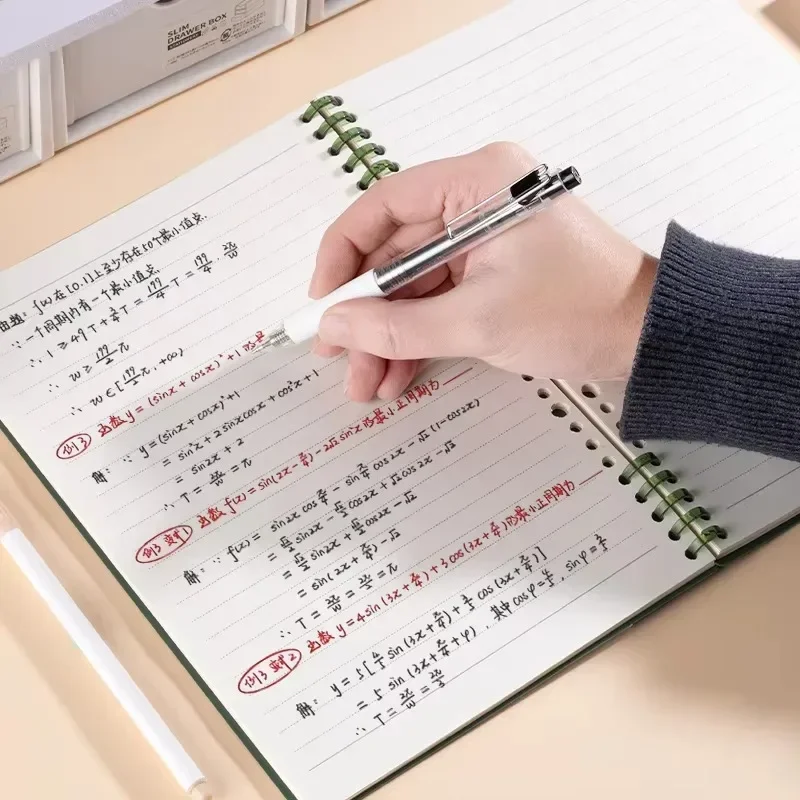 SLIM
DRAWER BOX
由题: f(x)在[0,1]上至少存在50个最小值点.
∵一个周期内有一个最小值点
∴ 1≥49T+¾T = 199/4 T = 199/4 · 2π/w
∴ w ≥ 199/2 π
∴ w∈[199/2 π, +∞)
例3 函数y=(sinx+cosx)²+1的是
解: ∵ y=(sinx+cosx)²+1
= sin²x+2sinxcosx+cos²x+1
= sin2x+2
∴ T = 2π/w = π
例3 变1 函数f(x)=sin(2x-π/4)-2√2sin²x的最小正周期为
解: ∵ f(x)= sin2x cos π/4 - sin π/4 cos2x - √2(1-cos2x)
= √2/2 sin2x - √2/2 cos2x + √2cos2x - √2
= √2/2 sin2x + √2/2 cos2x - √2
= sin(2x+π/4) - √2
∴ T = 2π/w = 2π/2 = π
例3 变2 函数y=4sin(3x+π/4)+3cos(3x+π/4)的最小正周期为
解: y=5[4/5 sin(3x+π/4)+3/5 cos(3x+π/4)]
= 5 sin(3x+π/4+φ), 其中cosφ=4/5, sinφ=3/5
∴ T = 2π/w = 2π/3